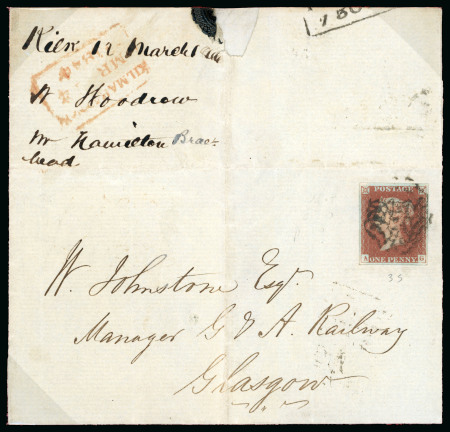 Kilk 12 March 1844
W Woodrow
Mr Hamilton Brae-
head
KILMARNOCK
MR
1844
POSTAGE
ONE PENNY
35
W. Johnstone Esqr.
Manager G & A. Railway
Glasgow